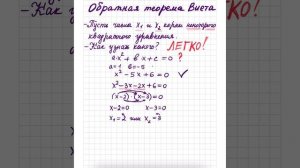 Обратная теорема Виета
-Пусть числа x₁ и x₂ корни некоторого
квадратного уравнения.
-Как узнать какого? ЛЕГКО!
a·x² + b x + c = 0 ?
a=1 b=-5
x² - 5x + 6 = 0 ✓
x² - 3x - 2x + 6 = 0
(x-2)·(x-3) = 0
x-2=0 x-3=0
x₁=2 или x₂=3